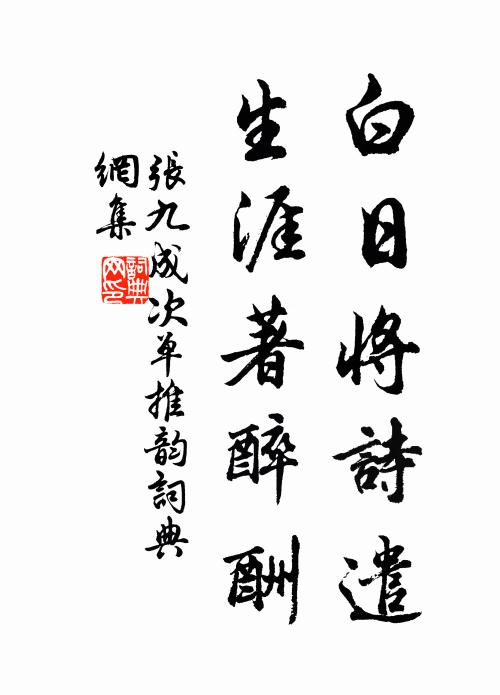 白日將詩遣
生涯著醉酬
張九成次单推韵詞典
網集
詞典
网印